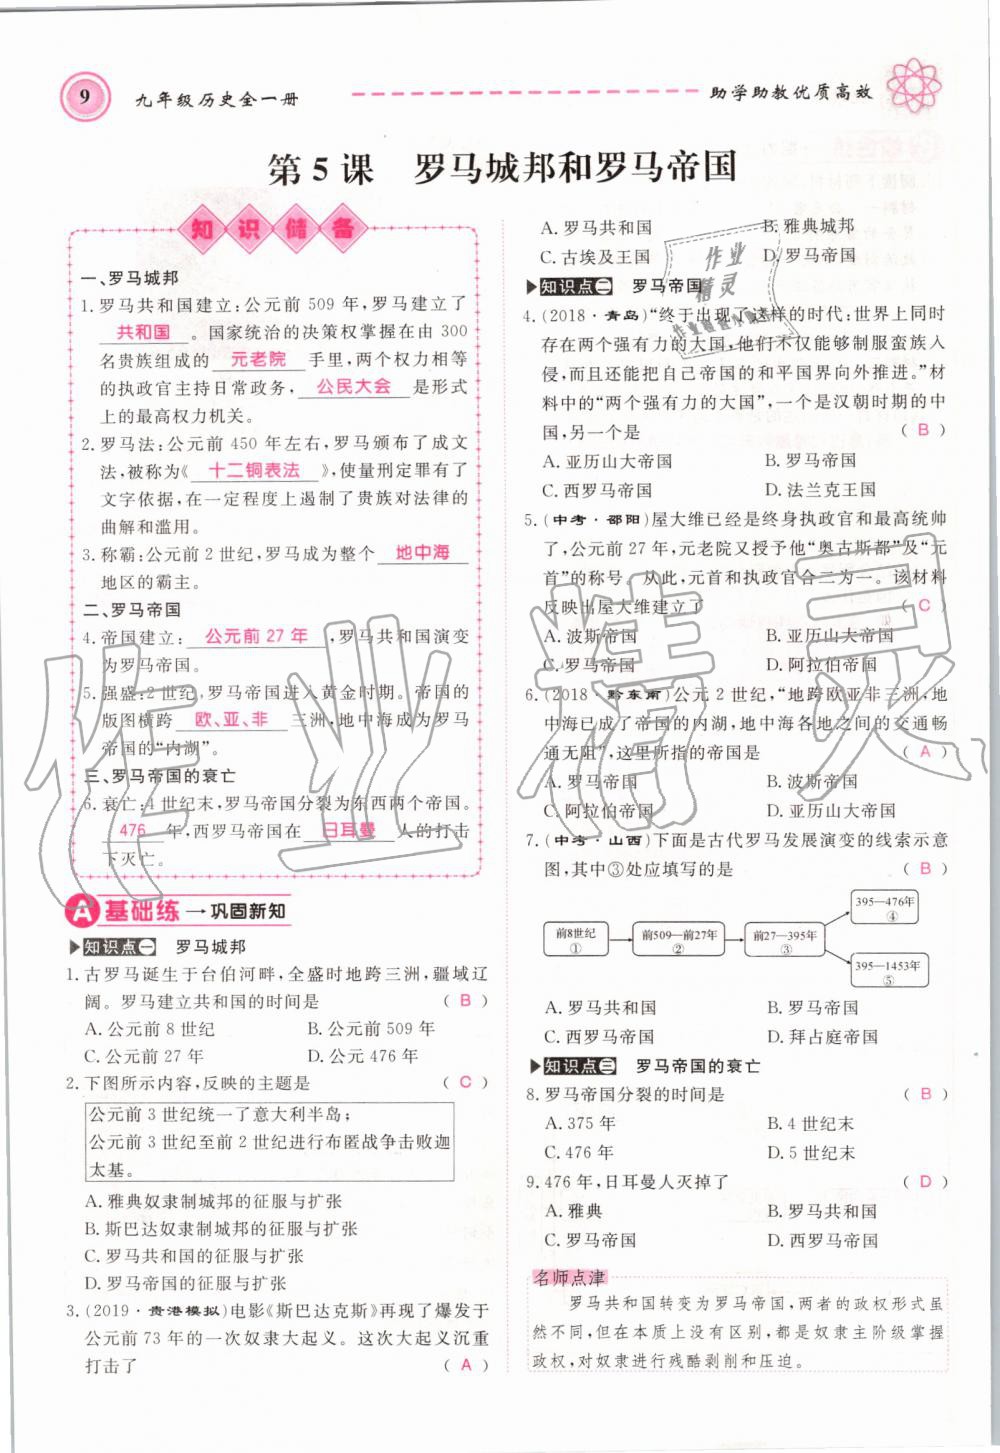 9
九年级历史全一册
助学助教优质高效
第5课 罗马城邦和罗马帝国
知识储备
一、罗马城邦
1.罗马共和国建立:公元前509年,罗马建立了
共和国。国家统治的决策权掌握在由300
名贵族组成的元老院手里,两个权力相等
的执政官主持日常政务,公民大会是形式
上的最高权力机关。
2.罗马法:公元前450年左右,罗马颁布了成文
法,被称为《十二铜表法》,使量刑定罪有了
文字依据,在一定程度上遏制了贵族对法律的
曲解和滥用。
3.称霸:公元前2世纪,罗马成为整个地中海
地区的霸主。
二、罗马帝国
4.帝国建立:公元前27年,罗马共和国演变
为罗马帝国。
5.强盛:2世纪,罗马帝国进入黄金时期。帝国的
版图横跨欧、亚、非三洲,地中海成为罗马
帝国的“内湖”。
三、罗马帝国的衰亡
6.衰亡:4世纪末,罗马帝国分裂为东西两个帝国。
476年,西罗马帝国在日耳曼人的打击
下灭亡。
A 基础练→巩固新知
知识点一 罗马城邦
1.古罗马诞生于台伯河畔,全盛时地跨三洲,疆域辽
阔。罗马建立共和国的时间是 (B)
A.公元前8世纪 B.公元前509年
C.公元前27年 D.公元476年
2.下图所示内容,反映的主题是 (C)
公元前3世纪统一了意大利半岛;
公元前3世纪至前2世纪进行布匿战争击败迦
太基。
A.雅典奴隶制城邦的征服与扩张
B.斯巴达奴隶制城邦的征服与扩张
C.罗马共和国的征服与扩张
D.罗马帝国的征服与扩张
3.(2019·贵港模拟)电影《斯巴达克斯》再现了爆发于
公元前73年的一次奴隶大起义。这次大起义沉重
打击了 (A)
A.罗马共和国 B.雅典城邦
C.古埃及王国 D.罗马帝国
知识点二 罗马帝国
4.(2018·青岛)“终于出现了这样的时代:世界上同时
存在两个强有力的大国,他们不仅能够制服蛮族入
侵,而且还能把自己帝国的和平国界向外推进。”材
料中的“两个强有力的大国”,一个是汉朝时期的中
国,另一个是 (B)
A.亚历山大帝国 B.罗马帝国
C.西罗马帝国 D.法兰克王国
5.(中考·邵阳)屋大维已经是终身执政官和最高统帅
了,公元前27年,元老院又授予他“奥古斯都”及“元
首”的称号。从此,元首和执政官合二为一。该材料
反映出屋大维建立了 (C)
A.波斯帝国 B.亚历山大帝国
C.罗马帝国 D.阿拉伯帝国
6.(2018·黔东南)公元2世纪,“地跨欧亚非三洲,地
中海已成了帝国的内湖,地中海各地之间的交通畅
通无阻”,这里所指的帝国是 (A)
A.罗马帝国 B.波斯帝国
C.阿拉伯帝国 D.亚历山大帝国
7.(中考·山西)下面是古代罗马发展演变的线索示意
图,其中③处应填写的是 (B)
前8世纪 ①
前509—前27年 ②
前27—395年 ③
395—476年 ④
395—1453年 ⑤
A.罗马共和国 B.罗马帝国
C.西罗马帝国 D.拜占庭帝国
知识点三 罗马帝国的衰亡
8.罗马帝国分裂的时间是 (B)
A.375年 B.4世纪末
C.476年 D.5世纪末
9.476年,日耳曼人灭掉了 (D)
A.雅典 B.罗马共和国
C.罗马帝国 D.西罗马帝国
名师点津
罗马共和国转变为罗马帝国,两者的政权形式虽
然不同,但在本质上没有区别,都是奴隶主阶级掌握
政权,对奴隶进行残酷剥削和压迫。
作业精灵
作业
精灵